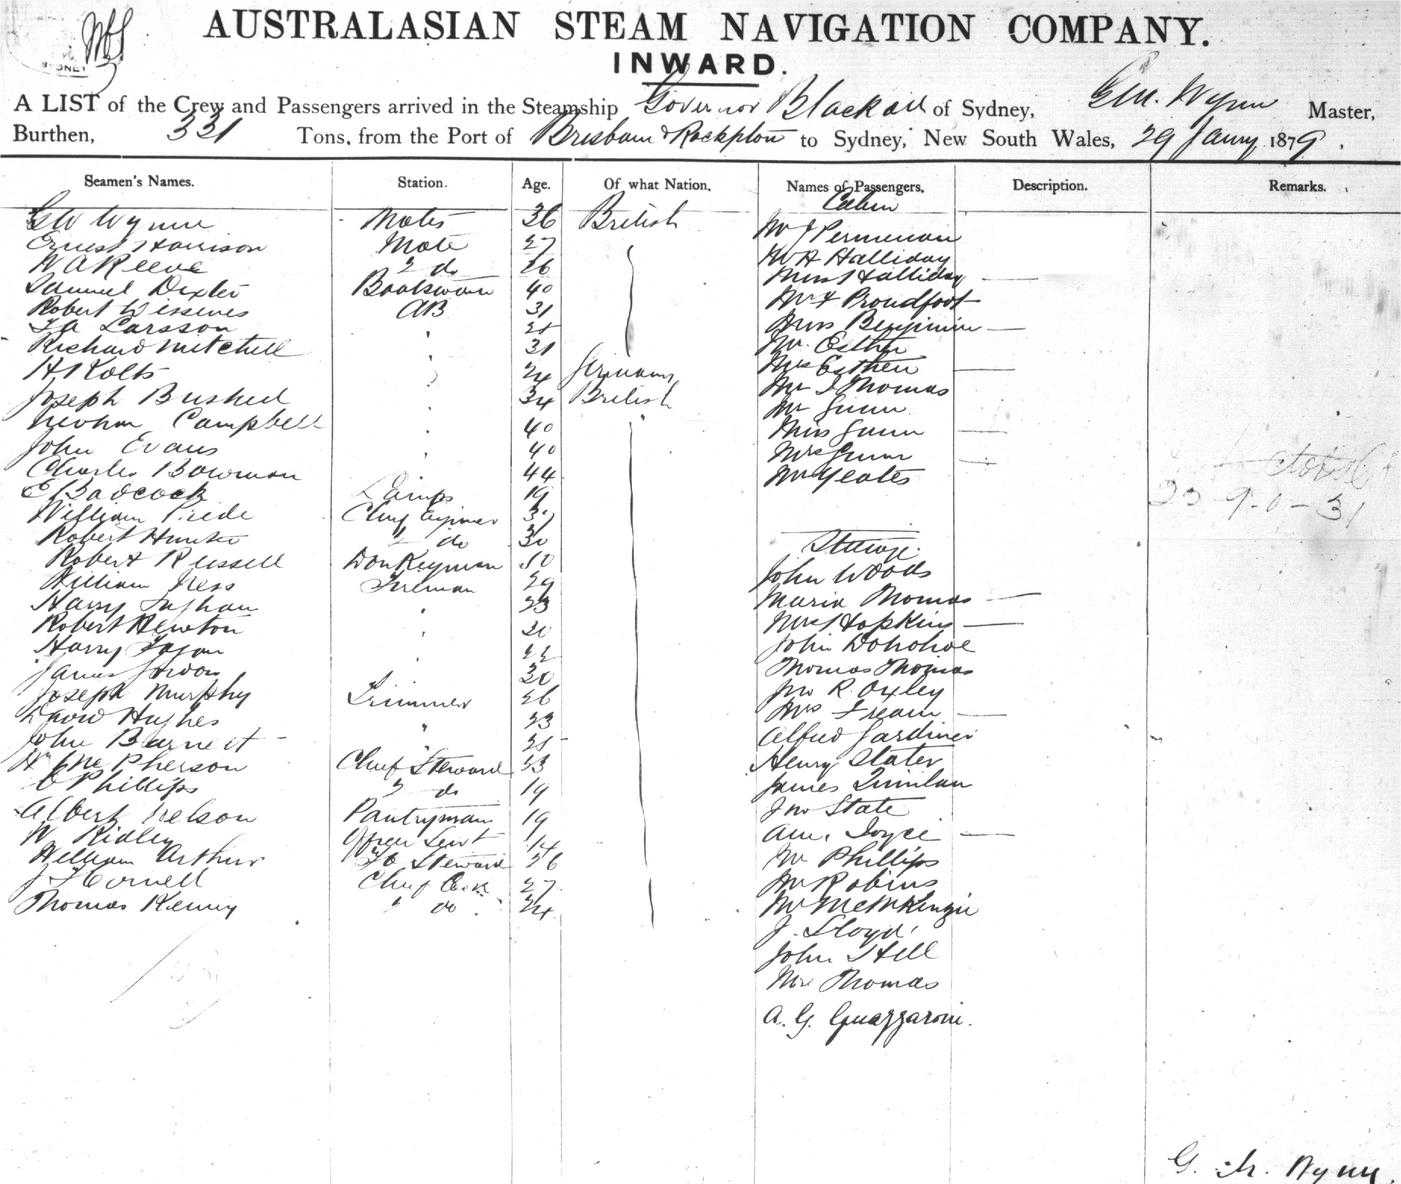 AUSTRALASIAN STEAM NAVIGATION COMPANY.
INWARD.
A LIST of the Crew and Passengers arrived in the Steamship Governor Blackall of Sydney, Geo. Wynn Master,
Burthen, 331 Tons, from the Port of Brisbane & Rockpton to Sydney, New South Wales, 29 Janry 1879.
Seamen's Names. Station. Age. Of what Nation. Names of Passengers, Description. Remarks.
Cabin
GW Wynn 36 British
Mr J
Ernest Harrison Mate 27
Mr H Halliday
W A Reeve 2 do 26
Miss Halliday —
Samuel Dexter Boatswain 40
Mr F Proudfoot
Robert AB 31
Mrs Benjimin —
Larsson
Mr. Esther
Richard Mitchell 31
Mrs Esther —
H Kolts 24 Germany
Mr J Thomas
Joseph Bushed 34 British
Mr Gunn
Campbell 40
Miss Gunn —
John Evans 40
Mrs Gunn —
Charles Bowman 44
Mr Yeates
E Badcock Lamps 19
William Chief Engineer
Robert Hunter 2 do 30
Steerage
Robert Russell Donkeyman 50
John Woods
William Ness Fireman 29
Maria Thomas —
Harry 23
Mrs Hopkins —
Robert Newton
John Donohoe
Harry
Thomas Thomas
James Gordon 30
Jno R. Oxley
Joseph Murphy Trimmer 26
Mrs Fream —
David Hughes 23
Alfred Gardiner
John Burnett
Henry Slater
H McPherson Chief Steward
James Quinlan
C Phillips 2 do 19
Jno State
Albert Nelson Pantryman 19
Joyce —
W Ridley Officer Servt 14
Mr Phillips
William Arthur Steward 26
Mr Robins
J F Cornell Chief Cook 27
Mr McKenzie
Thomas Kenny 2 do 24
J. Lloyd
John Hill
Thomas
A. G. Guazzaroni.
G. Wynn.